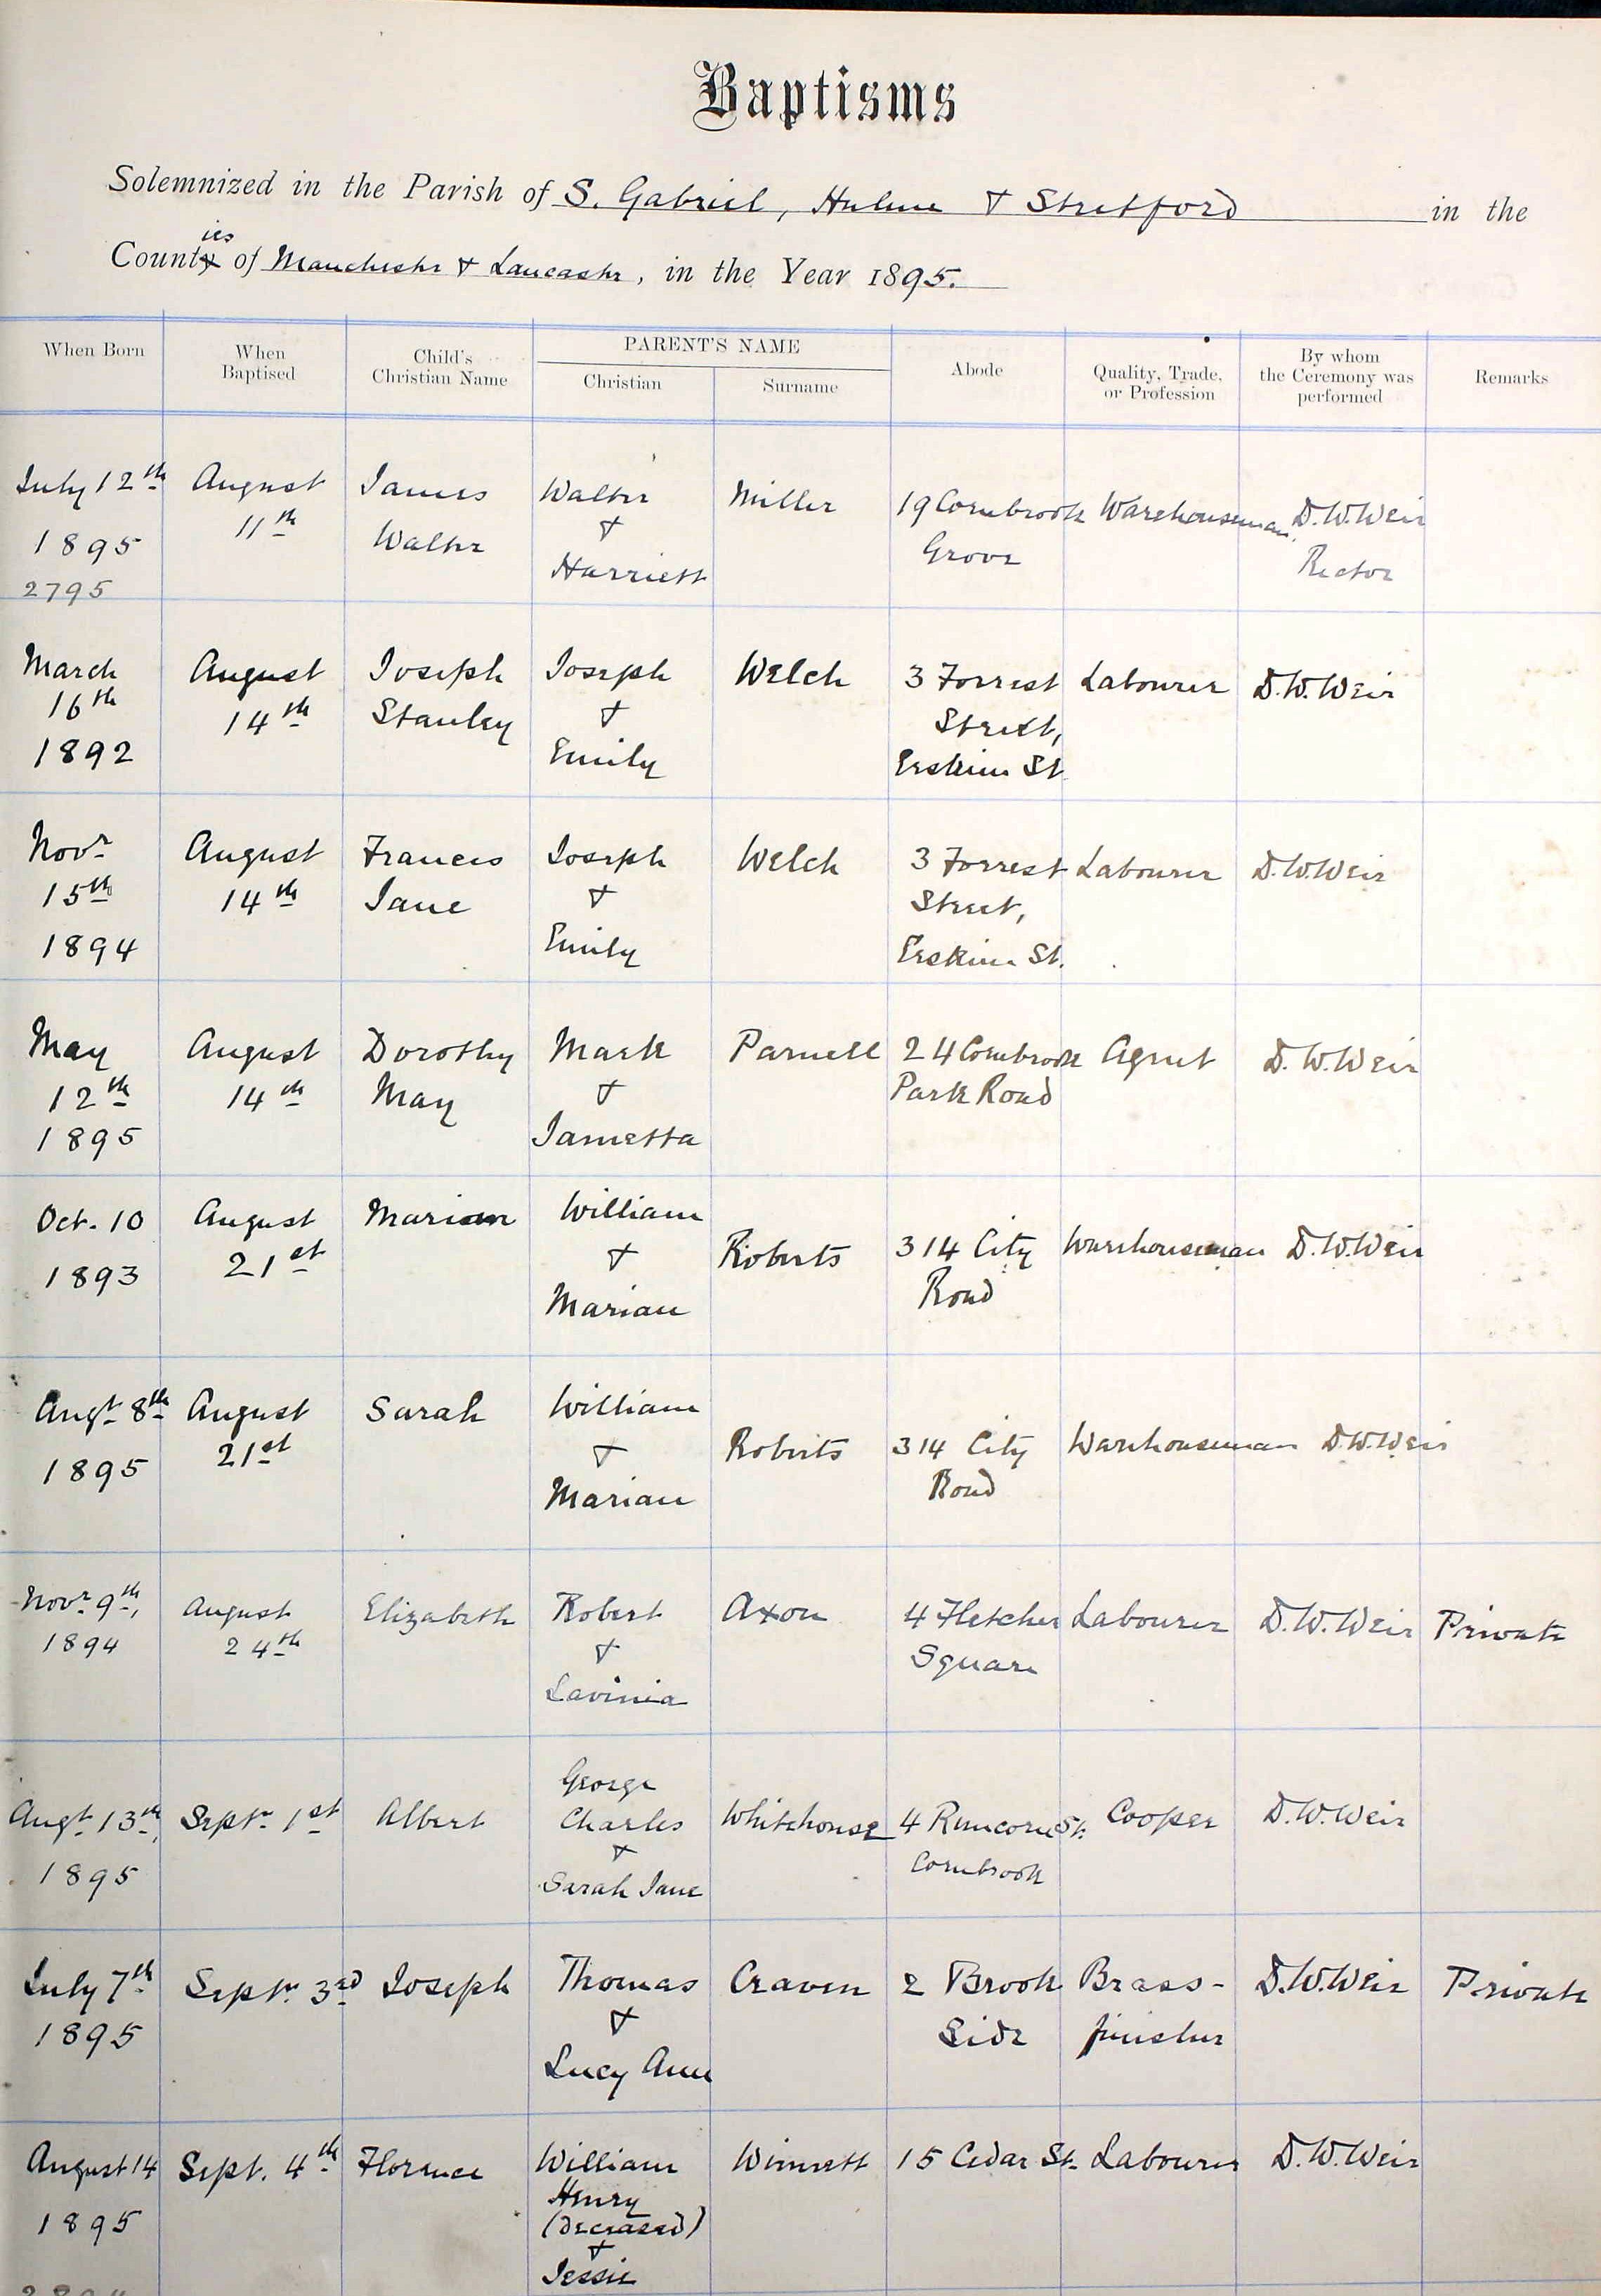 Baptisms
Solemnized in the Parish of S. Gabriel, Hulme & Stretford in the
Counties of Manchester & Lancaster, in the Year 1895.
When Born
When
Baptised
Child's
Christian Name
PARENT'S NAME
Christian
Surname
Abode
Quality, Trade,
or Profession
By whom
the Ceremony was
performed
Remarks
July 12th
1895
2795
August
11th
James
Walter
Walter
&
Harriett
Miller
19 Cornbrook
Grove
Warehouseman
D. W. Weir
Rector
March
16th
1892
August
14th
Joseph
Stanley
Joseph
&
Emily
Welch
3 Forrest
Street,
Erskine St
Labourer
D. W. Weir
Novr
15th
1894
August
14th
Frances
Jane
Joseph
&
Emily
Welch
3 Forrest
Street,
Erskine St.
Labourer
D. W. Weir
May
12th
1895
August
14th
Dorothy
May
Mark
&
Jametta
Parnell
24 Cornbrook
Park Road
Agent
D. W. Weir
Oct. 10
1893
August
21st
Marian
William
&
Marian
Roberts
314 City
Road
Warehouseman
D. W. Weir
Augt 8th
1895
August
21st
Sarah
William
&
Marian
Roberts
314 City
Road
Warehouseman
D. W. Weir
Novr 9th,
1894
August
24th
Elizabeth
Robert
&
Lavinia
Axon
4 Fletcher
Square
Labourer
D. W. Weir
Private
Augt 13th,
1895
Septr 1st
Albert
George
Charles
&
Sarah Jane
Whitehouse
4 Runcorn St.
Cornbrook
Cooper
D. W. Weir
July 7th
1895
Septr 3rd
Joseph
Thomas
&
Lucy Ann
Craven
2 Brook
Side
Brass-
finisher
D. W. Weir
Private
August 14
1895
Sept. 4th
Florence
William
Henry
(deceased)
&
Jessie
Winnett
15 Cedar St.
Labourer
D. W. Weir